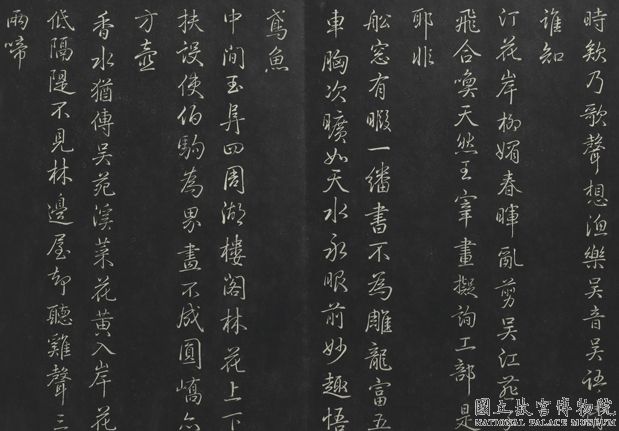 時欸乃歌聲想漁樂吳音吳語
誰知
汀花岸柳媚春暉亂剪吳江燕
飛合喚天然王宰畫擬詢工部是
耶非
舩窓有暇一繙書不為雕龍富五
車胸次曠如天水永眼前妙趣悟
鳶魚
中間玉㠀四周湖樓閣林花上下
扶設使伯駒為界畫不成圓嶠亦
方壺
香水猶傳吳苑溪菜花黃入岸花
低隔隄不見林邊屋却聽雞聲三
兩啼
國立故宮博物院
NATIONAL PALACE MUSEUM